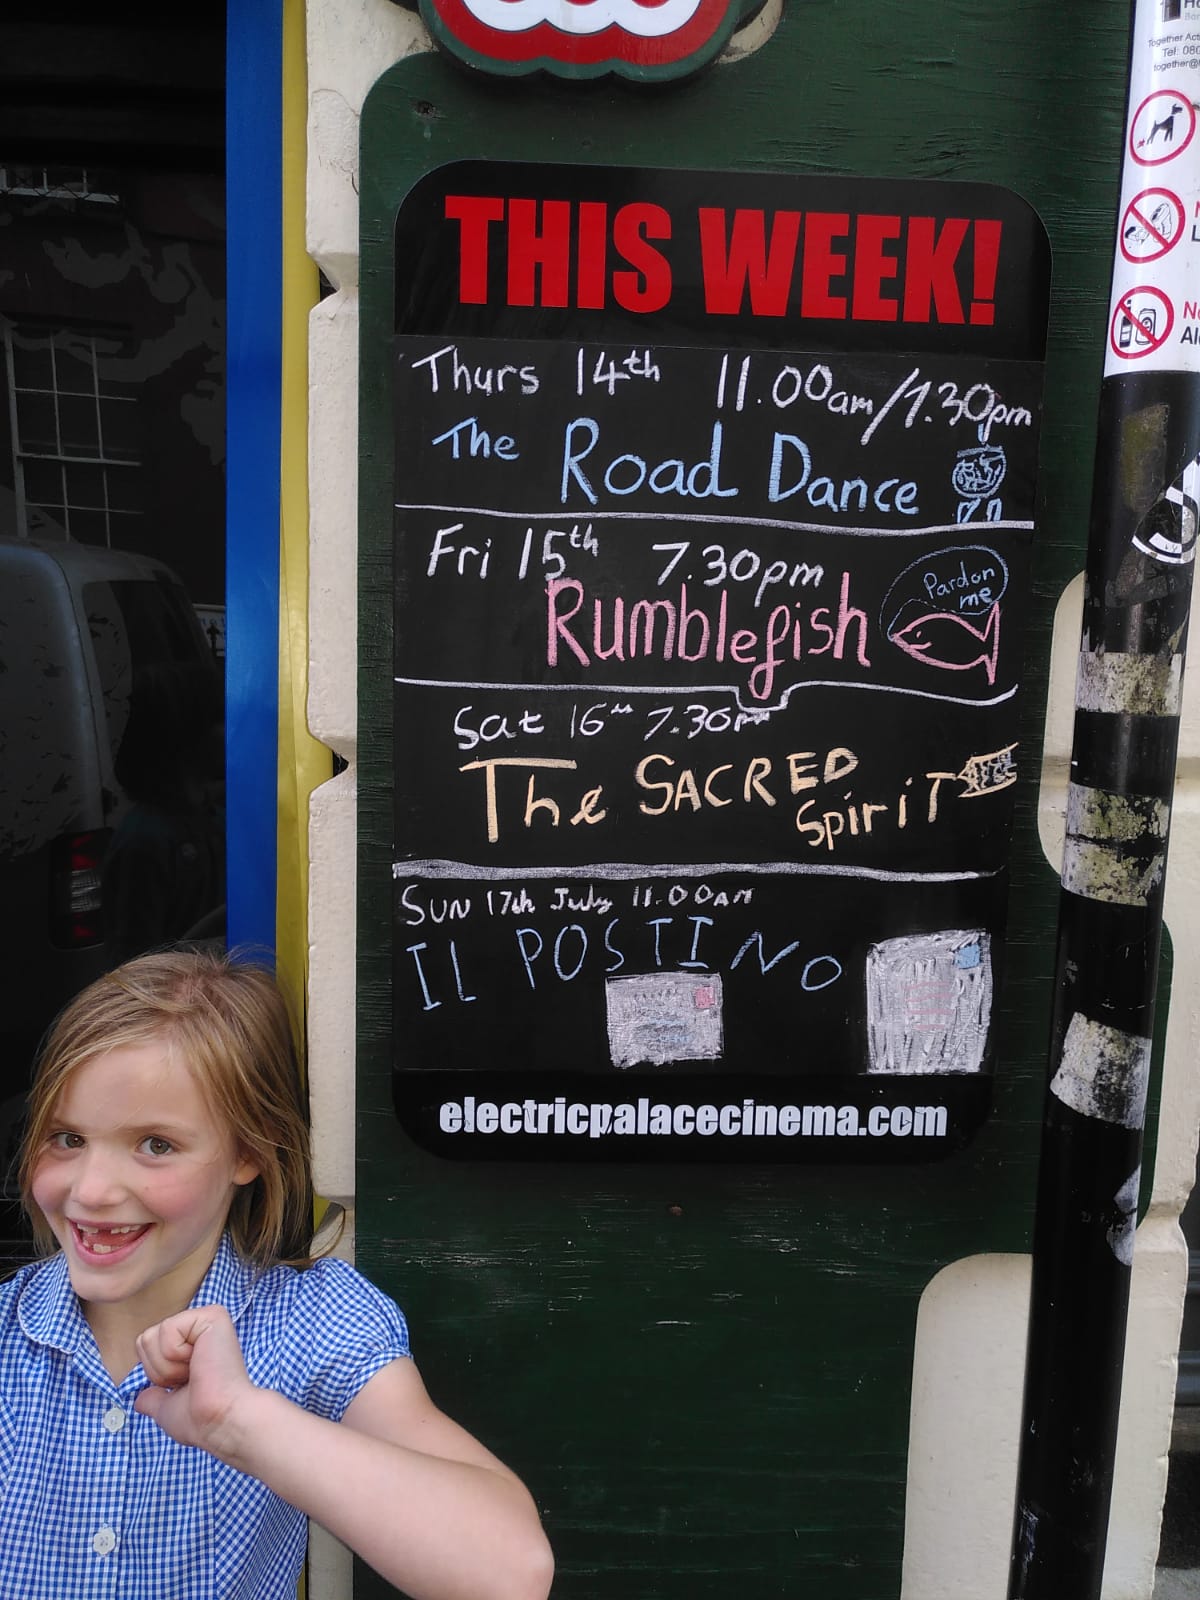 THIS WEEK!
Thurs 14th 11.00am/7.30pm
The Road Dance
Fri 15th 7.30pm
Rumblefish
Pardon
me
Sat 16th 7.30pm
The SACRED
Spirit
SUN 17th July 11.00AM
IL POSTINO
electricpalacecinema.com
Together Act
Tel: 080
together@